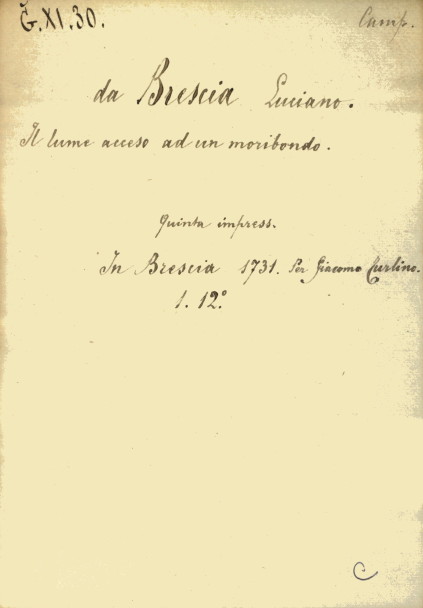 Č.XI.30.
Camp.
da Brescia Luciano.
Il lume acceso ad un moribondo.
Quinta impress.
In Brescia 1731. Per Giacomo Turlino.
1. 12°
C